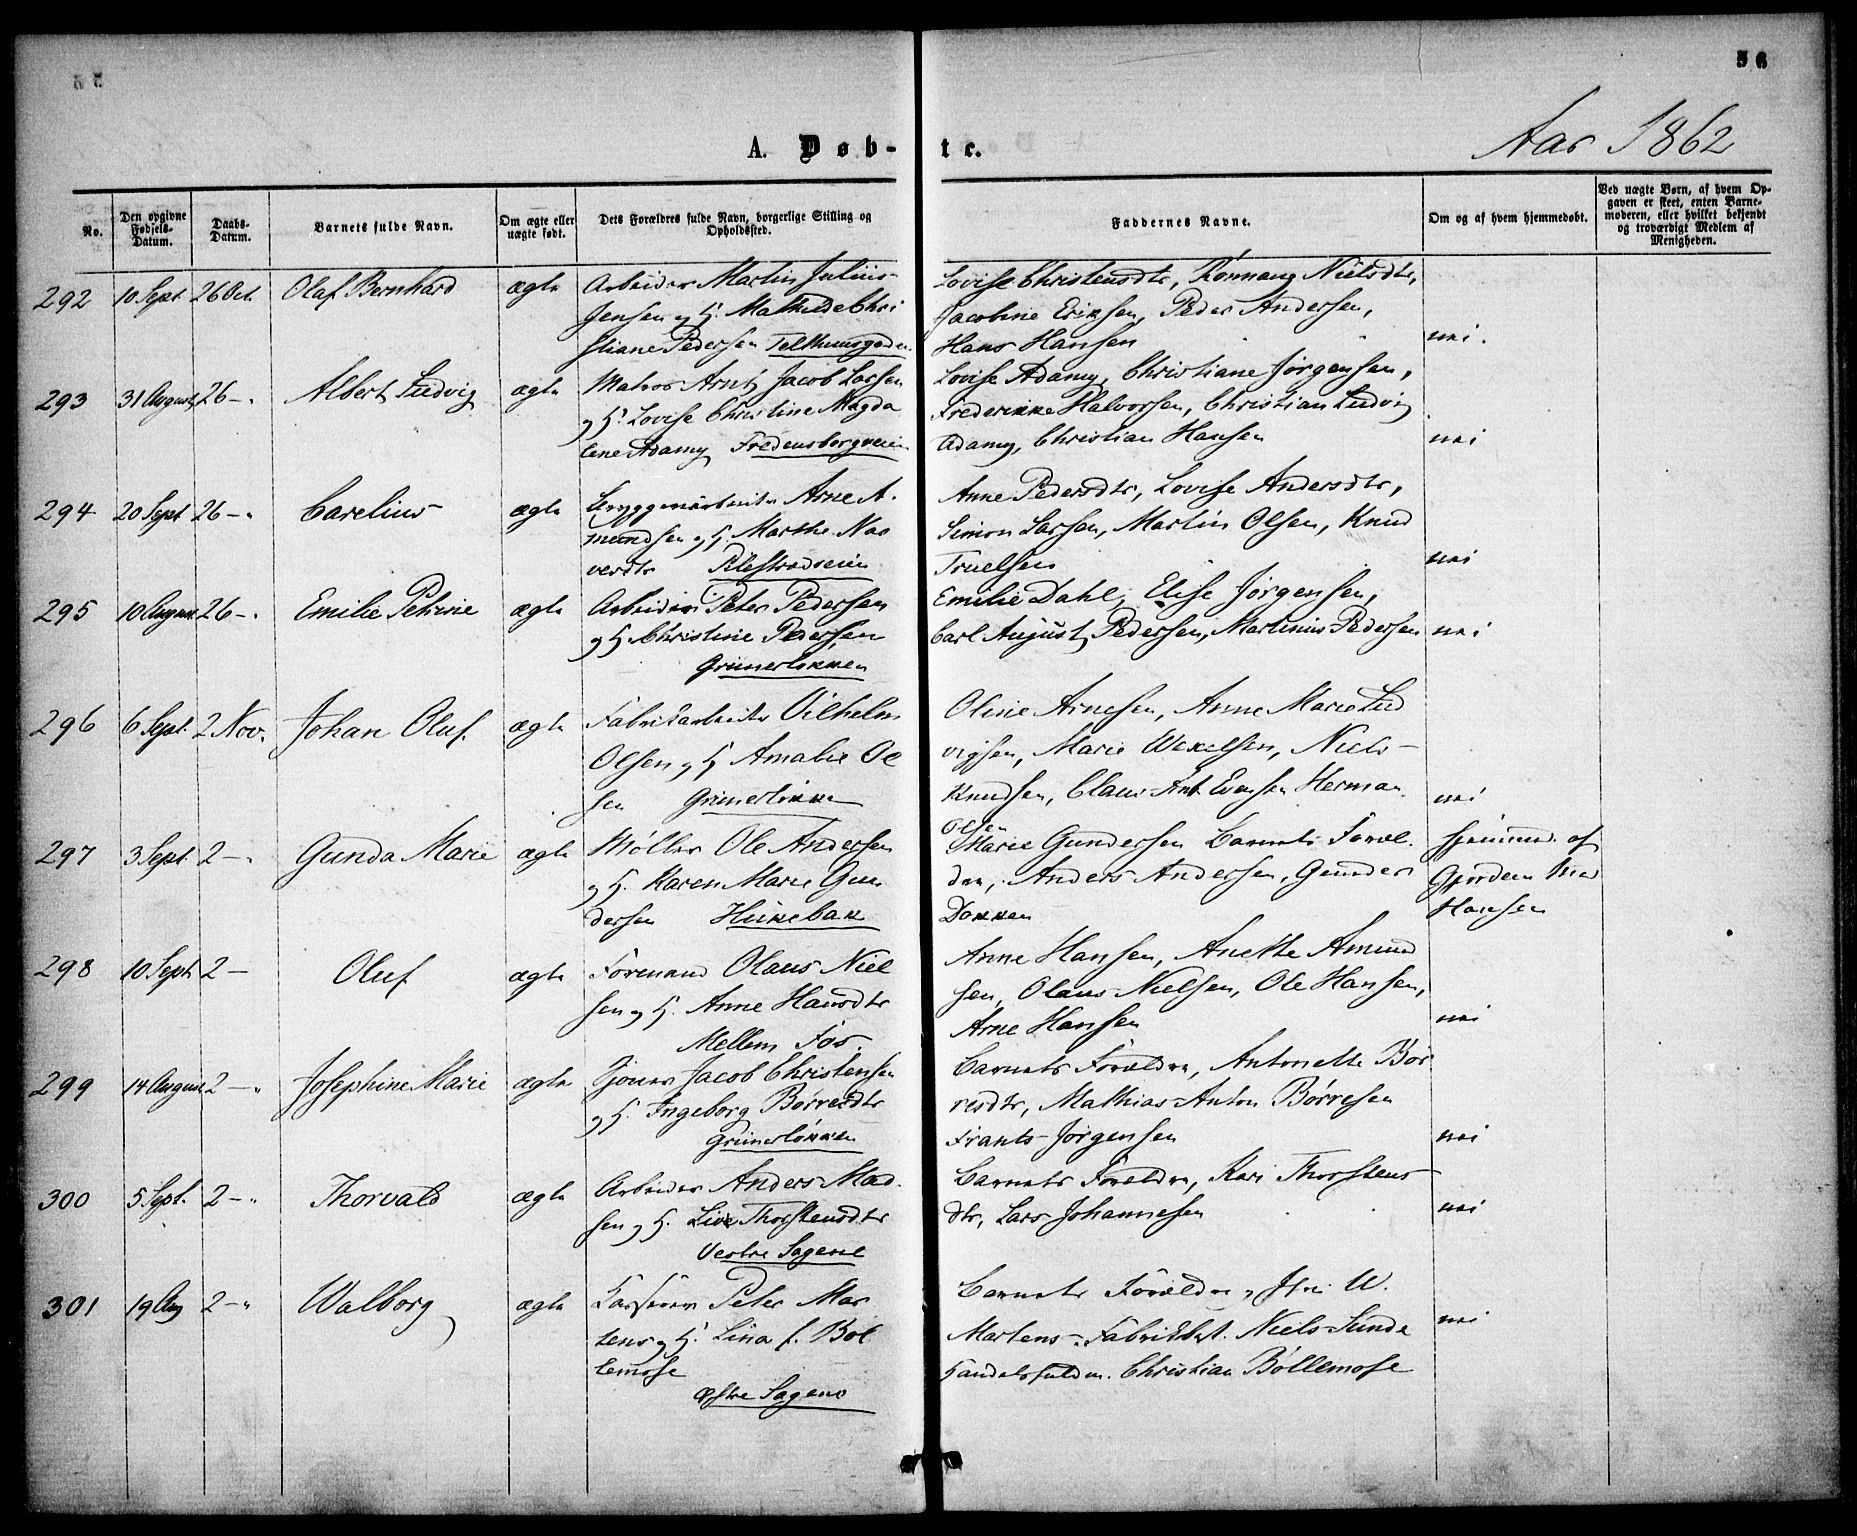 56
A. Døb-te.
Aar 1862
No.
Den opgivne Fødsels-Datum.
Daabs-Datum.
Barnets fulde Navn.
Om ægte eller uægte født.
Dets Forældres fulde Navn, borgerlige Stilling og Opholdssted.
Faddernes Navne.
Om og af hvem hjemmedøbt.
Ved uægte Børn, af hvem Opgaven er skeet, enten Barnemoderen, eller hvilket bekjendt og troværdigt Medlem af Menigheden.
292 10 Sept 26 Oct. Olaf Bernhard ægte Arbeider Martin Julius Lovise Christensdtr, Nielsdtr,
Jensen og H. Mathilde Chri Jacobine Eriksen, Peder Andersen,
stiane Pedersen Telthuusgaden Hans Hansen nei.
293 31 August 26 - " Albert Ludvig ægte Matros Arnt Jacob Larsen Lovise Adamy, Christiane Jørgensen,
og H. Lovise Christine Magda Frederikke Halvorsen, Christian Ludvig
lene Adamy Fredensborgveien Adamy, Christian Hansen nei
294 20 Sept 26 - " Carelius ægte Bryggeriarbeider Arne A. Anne Pedersdtr, Lovise Andersdtr,
mundsen og H. Marthe Nar Simon Larsen, Martin Olsen, Knud
verdtr Pilestrædveien Truelsen nei
295 10 August 26 - " Emilie Petrine ægte Arbeider Peter Pedersen Emilie Dahl, Elise Jørgensen,
og H. Christine Pedersen Carl August Pedersen, Martinus Pedersen nei
Grünerløkken
296 6 Sept. 2 Nov. Johan Oluf. ægte Fabrikarbeider Vilhelm Oline Arnesen, Anne Marie Lud
Olsen og H. Amalie Ol vigsen, Marie Wexelsen, Niels
sen Grünerløkken Knudsen, Claus Ant. Evensen Herman nei
Olsen
297 3 Sept 2 - " Gunda Marie ægte Møller Ole Andersen Marie Gundersen Barnets Foræl. hjemmed. af
og H. Karen Marie Gun dre, Anders Andersen, Gunder Gjordem
dersen Hukebak Dokken Hansen
298 10 Sept 2 - Oluf ægte Formand Olaus Niel Anne Hansen, Anethe Amund
sen og H. Anne Hansdtr sen, Olaus Nielsen, Ole Hansen,
Mellem Fos. Arne Hansen nei
299 14 August 2 - " Josephine Marie ægte Jacob Christensen Barnets Forældre, Antonette Bør
og H. Ingeborg Børresdtr resdtr, Mathias Anton Børresen
Grünerløkken Frants Jørgensen nei
300 5 Sept. 2 - " Thorvald ægte Arbeider Anders Mad Barnets Forældre, Kari Thorstens
sen og H. Live Thorstensdtr dtr, Lars Johannesen nei
Vestre Sagene
301 19 Aug 2 - " Walborg ægte Peter Mar Barnets Forældre, W.
tens og H. Lina f. Bøl Martens, Niels Sunde nei
lemose Christian Bøllemose
Østre Sagene